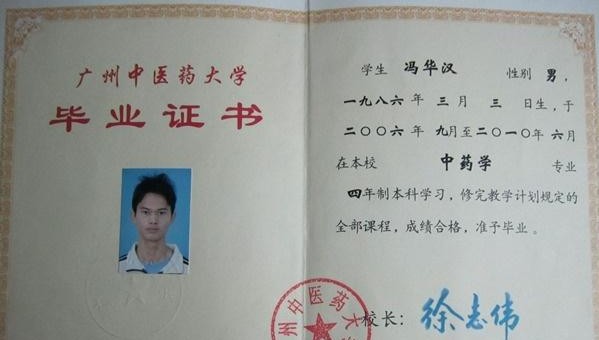 广州中医药大学
毕业证书
学生 冯华汉 性别 男，
一九八六年 三月 三日生，于
二〇〇六年 九月至二〇一〇年 六月
在本校 中药学 专业
四年制本科学习，修完教学计划规定的
全部课程，成绩合格，准予毕业。
州中医药大
校长：徐志伟